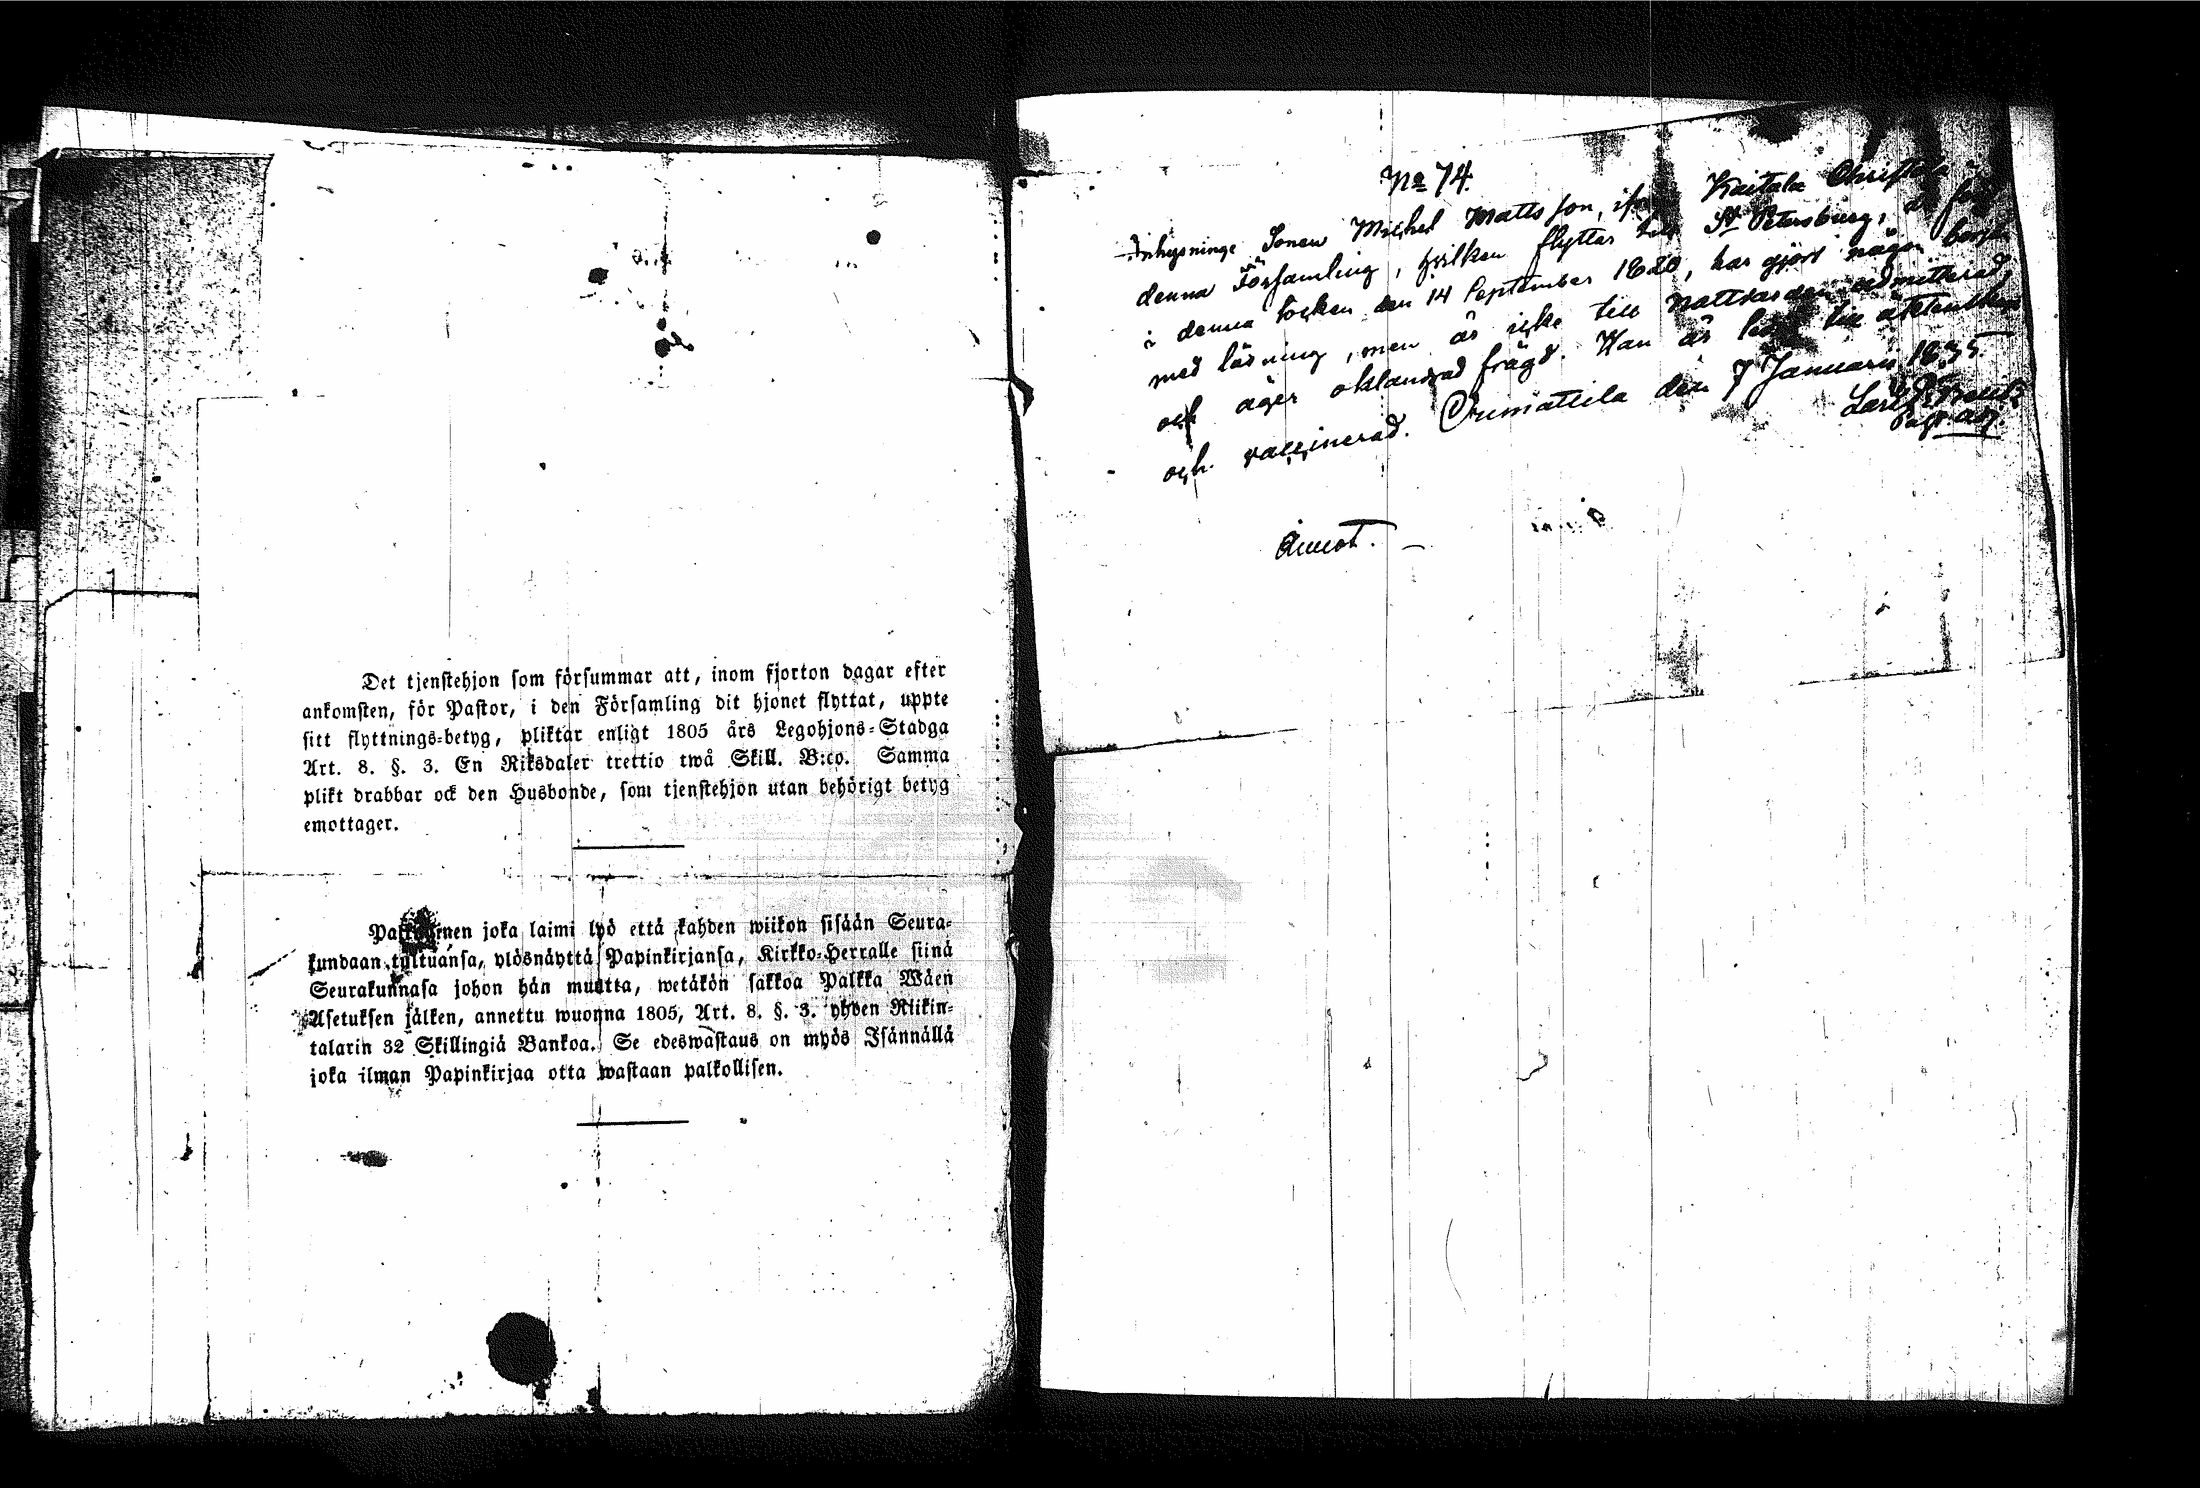 Det tjenstehjon som försummar att, inom fjorton dagar efter
ankomsten, för Pastor, i den Församling dit hjonet flyttat, uppte
sitt flyttnings-betyg, pliktar enligt 1805 års Legohjons-Stadga
Art. 8. §. 3. En Riksdaler trettio twå Skill. B:co. Samma
plikt drabbar ock den Husbonde, som tjenstehjon utan behörigt betyg
emottager.
joka laimi lyö että kahden wiikon sisään Seura-
kundaan tultuansa, ylösnäyttä Papinkirjansa, Kirkko-Herralle siinä
Seurakunnasa johon hän muutta, wetäkön sakkoa Palkka Wäen
Asetuksen jälken, annettu wuonna 1805, Art. 8. §. 3. yhden Riikin-
talarin 32 Skillingiä Bankoa. Se edeswastaus on myös Isännällä
joka ilman Papinkirjaa otta wastaan palkollisen.
No 74.
Inhysninge Sonen Michel Mattsson, ifrån Kaitala
denna Församling, hvilken flyttar till St Petersburg, är född
i denna Socken den 14 September 1820, har gjort någon början
med läsning, men är icke till Nattvarden admitterad,
och äger oklandrad frägd. Han är till äktenskap
och vaccinerad. Orimattila den 7 Januarii 1835.
Past. adj.